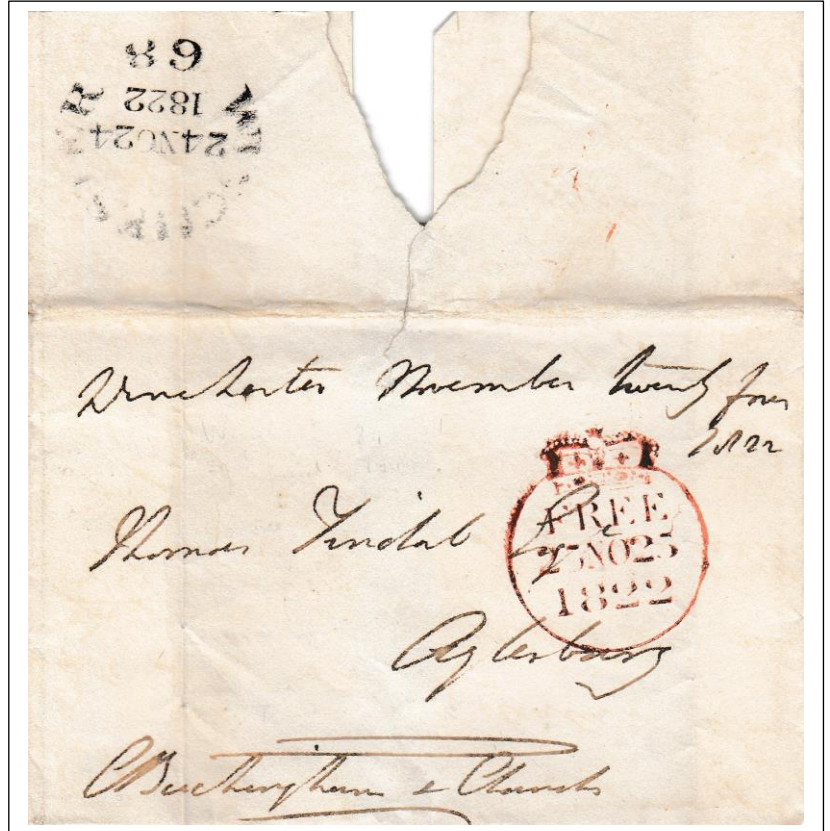 WINCHESTER
24NO24
1822
68
Winchester November twenty four
1822
Thomas Tindal Esqre
FREE
25NO25
1822
Aylesbury
Buckingham & Chandos